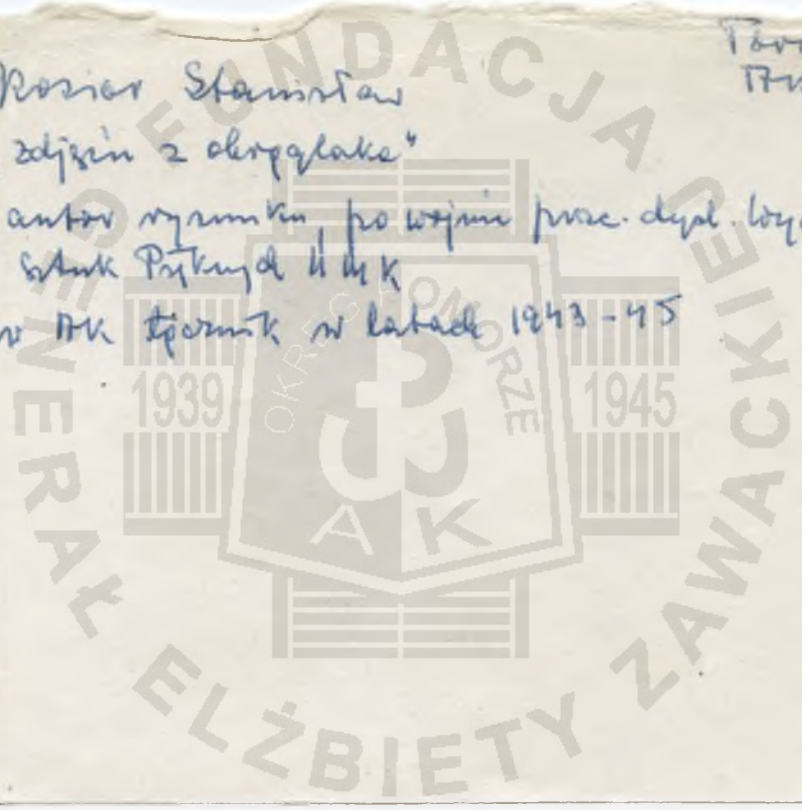 Kozior Stanisław
zdjęcia z okrąglaka"
autor rysunku, po wojnie prac. dypl.
Sztuk Pięknych UMK
w AK łącznik w latach 1943-45
FUNDACJA GENERAŁ ELŻBIETY ZAWACKIEJ
OKRĘG POMORZE
1939 1945
AK